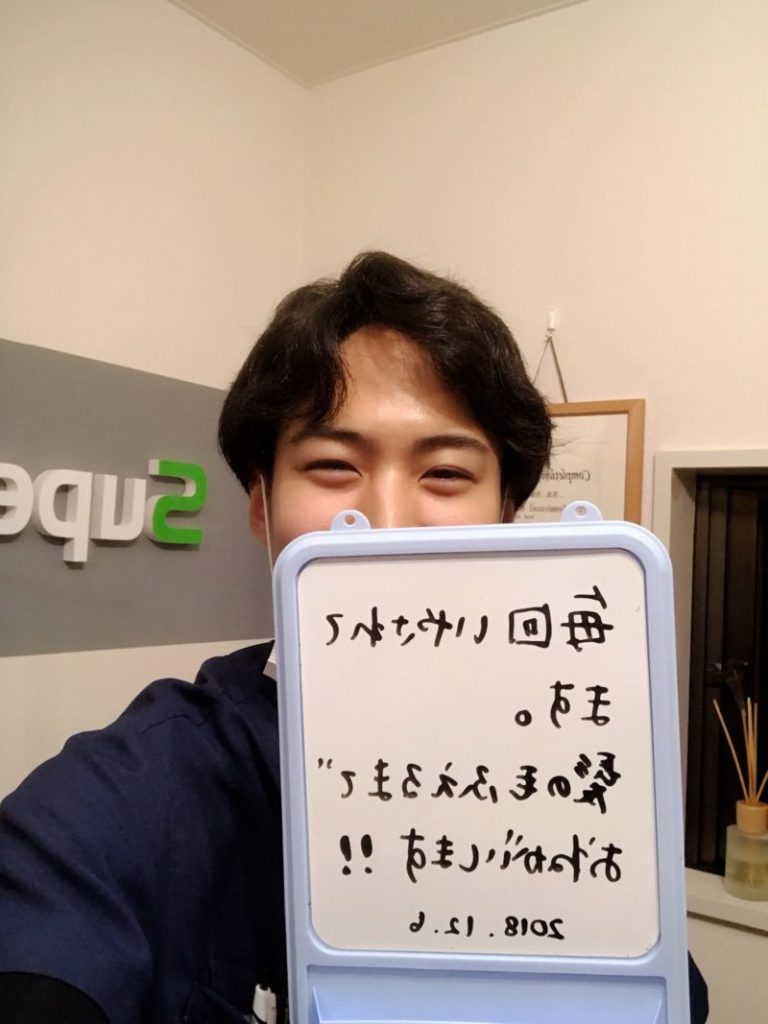 Supe
Completion
毎回いやされて
ます。
髪の毛ふえるまで
おねがいします!!
2018.12.6